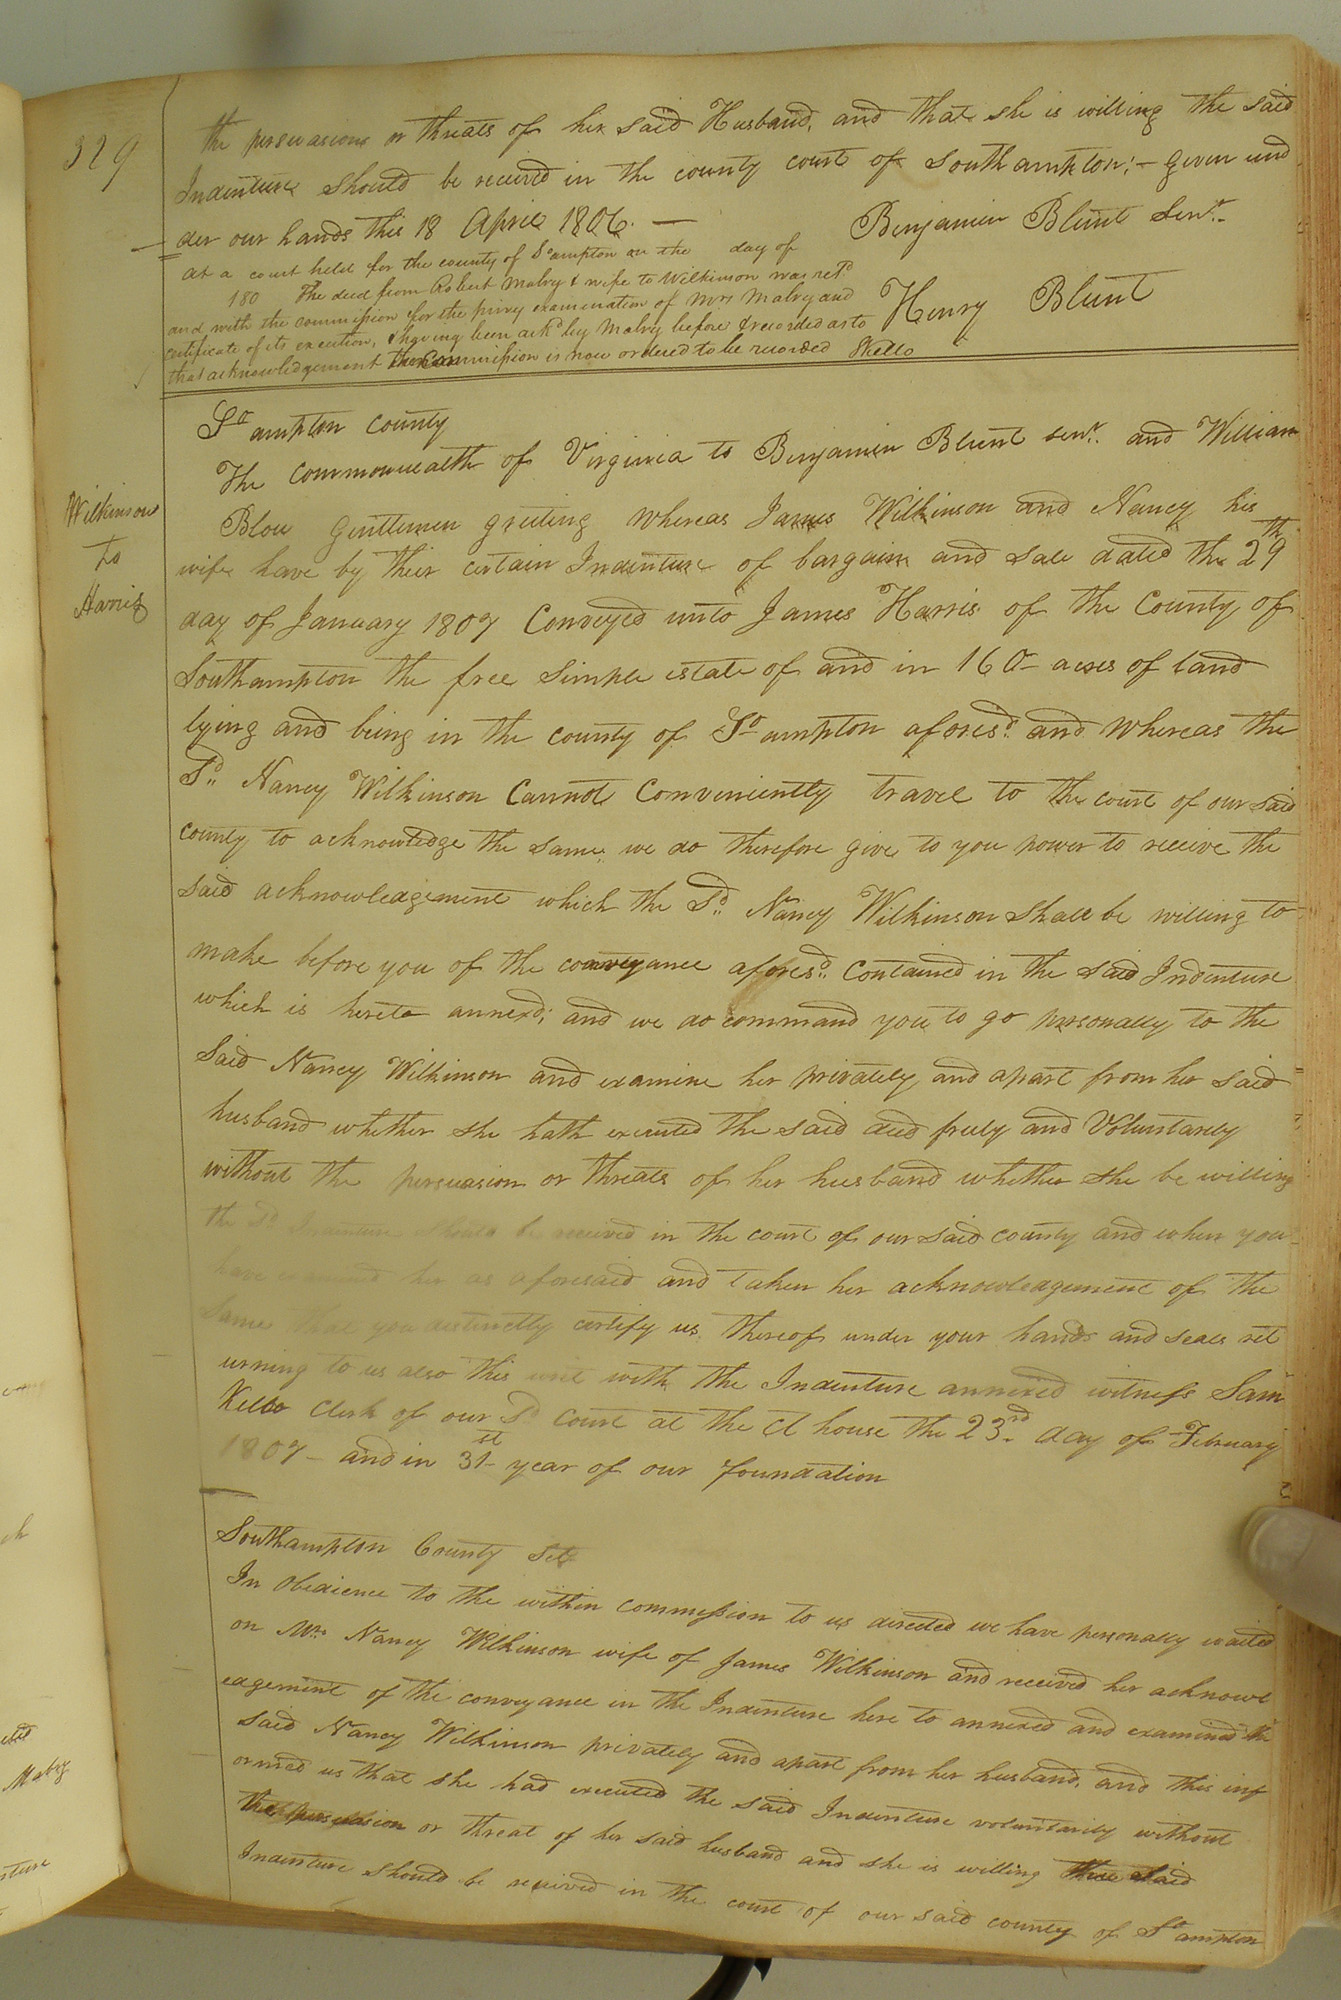 329
the persuasions or threats of her said Husband, and that she is willing the said
Indenture should be received in the county court of Southampton; – Given und
der our hands this 18 April 1806. —
Benjamin Blunt Senr.
Henry Blunt
at a court held for the county of So ampton on the day of
180 The deed from Robert Mabry & wife to Wilkinson was retd
and with the commission for the privy examination of Mrs Mabry and
certificate of its execution, & having been ackd by Mabry before & recorded as to
that acknowledgement the commission is now ordered to be recorded Kello
Wilkinson
to
Harris
So ampton County
The commonwealth of Virginia to Benjamin Blunt senr. and William
Blow Gentlemen greeting whereas James Wilkinson and Nancy his
wife have by their certain Indenture of bargain and sale dated the 29th
day of January 1807 Conveyed unto James Harris of the County of
Southampton the free simple estate of and in 160 – acres of land
lying and being in the county of So ampton aforesd. and whereas the
Sd. Nancy Wilkinson Cannot Conveniently travel to the court of our said
county to acknowledge the same we do therefore give to you power to receive the
said acknowledgement which the Sd. Nancy Wilkinson shall be willing to
make before you of the conveyance aforesd. Contained in the said Indenture
which is hereto annexd; and we do command you to go personally to the
Said Nancy Wilkinson and examine her privately and apart from her said
husband whether she hath executed the said deed freely and Voluntarily
without the persuasion or threats of her husband whether she be willing
the Sd Indenture should be received in the court of our said county and when you
have examined her as aforesaid and taken her acknowledgement of the
Same that you distinctly certify us thereof under your hands and seals ret
urning to us also this writ with the Indenture annexed witness Sam
Kello Clerk of our Sd Court at the Ct house the 23rd. day of February
1807 – and in 31st year of our foundation
Southampton County Sct
In Obedience to the within commission to us directed we have personally waited
on Mrs Nancy Wilkinson wife of James Wilkinson and received her acknowl
edgement of the conveyance in the Indenture here to annexed and examined the
said Nancy Wilkinson privately and apart from her husband, and this inf
ormed us that she had executed the said Indenture voluntarily without
the persuasion or threat of her said husband and she is willing the said
Indenture should be received in the court of our said county of So ampton
Mabry